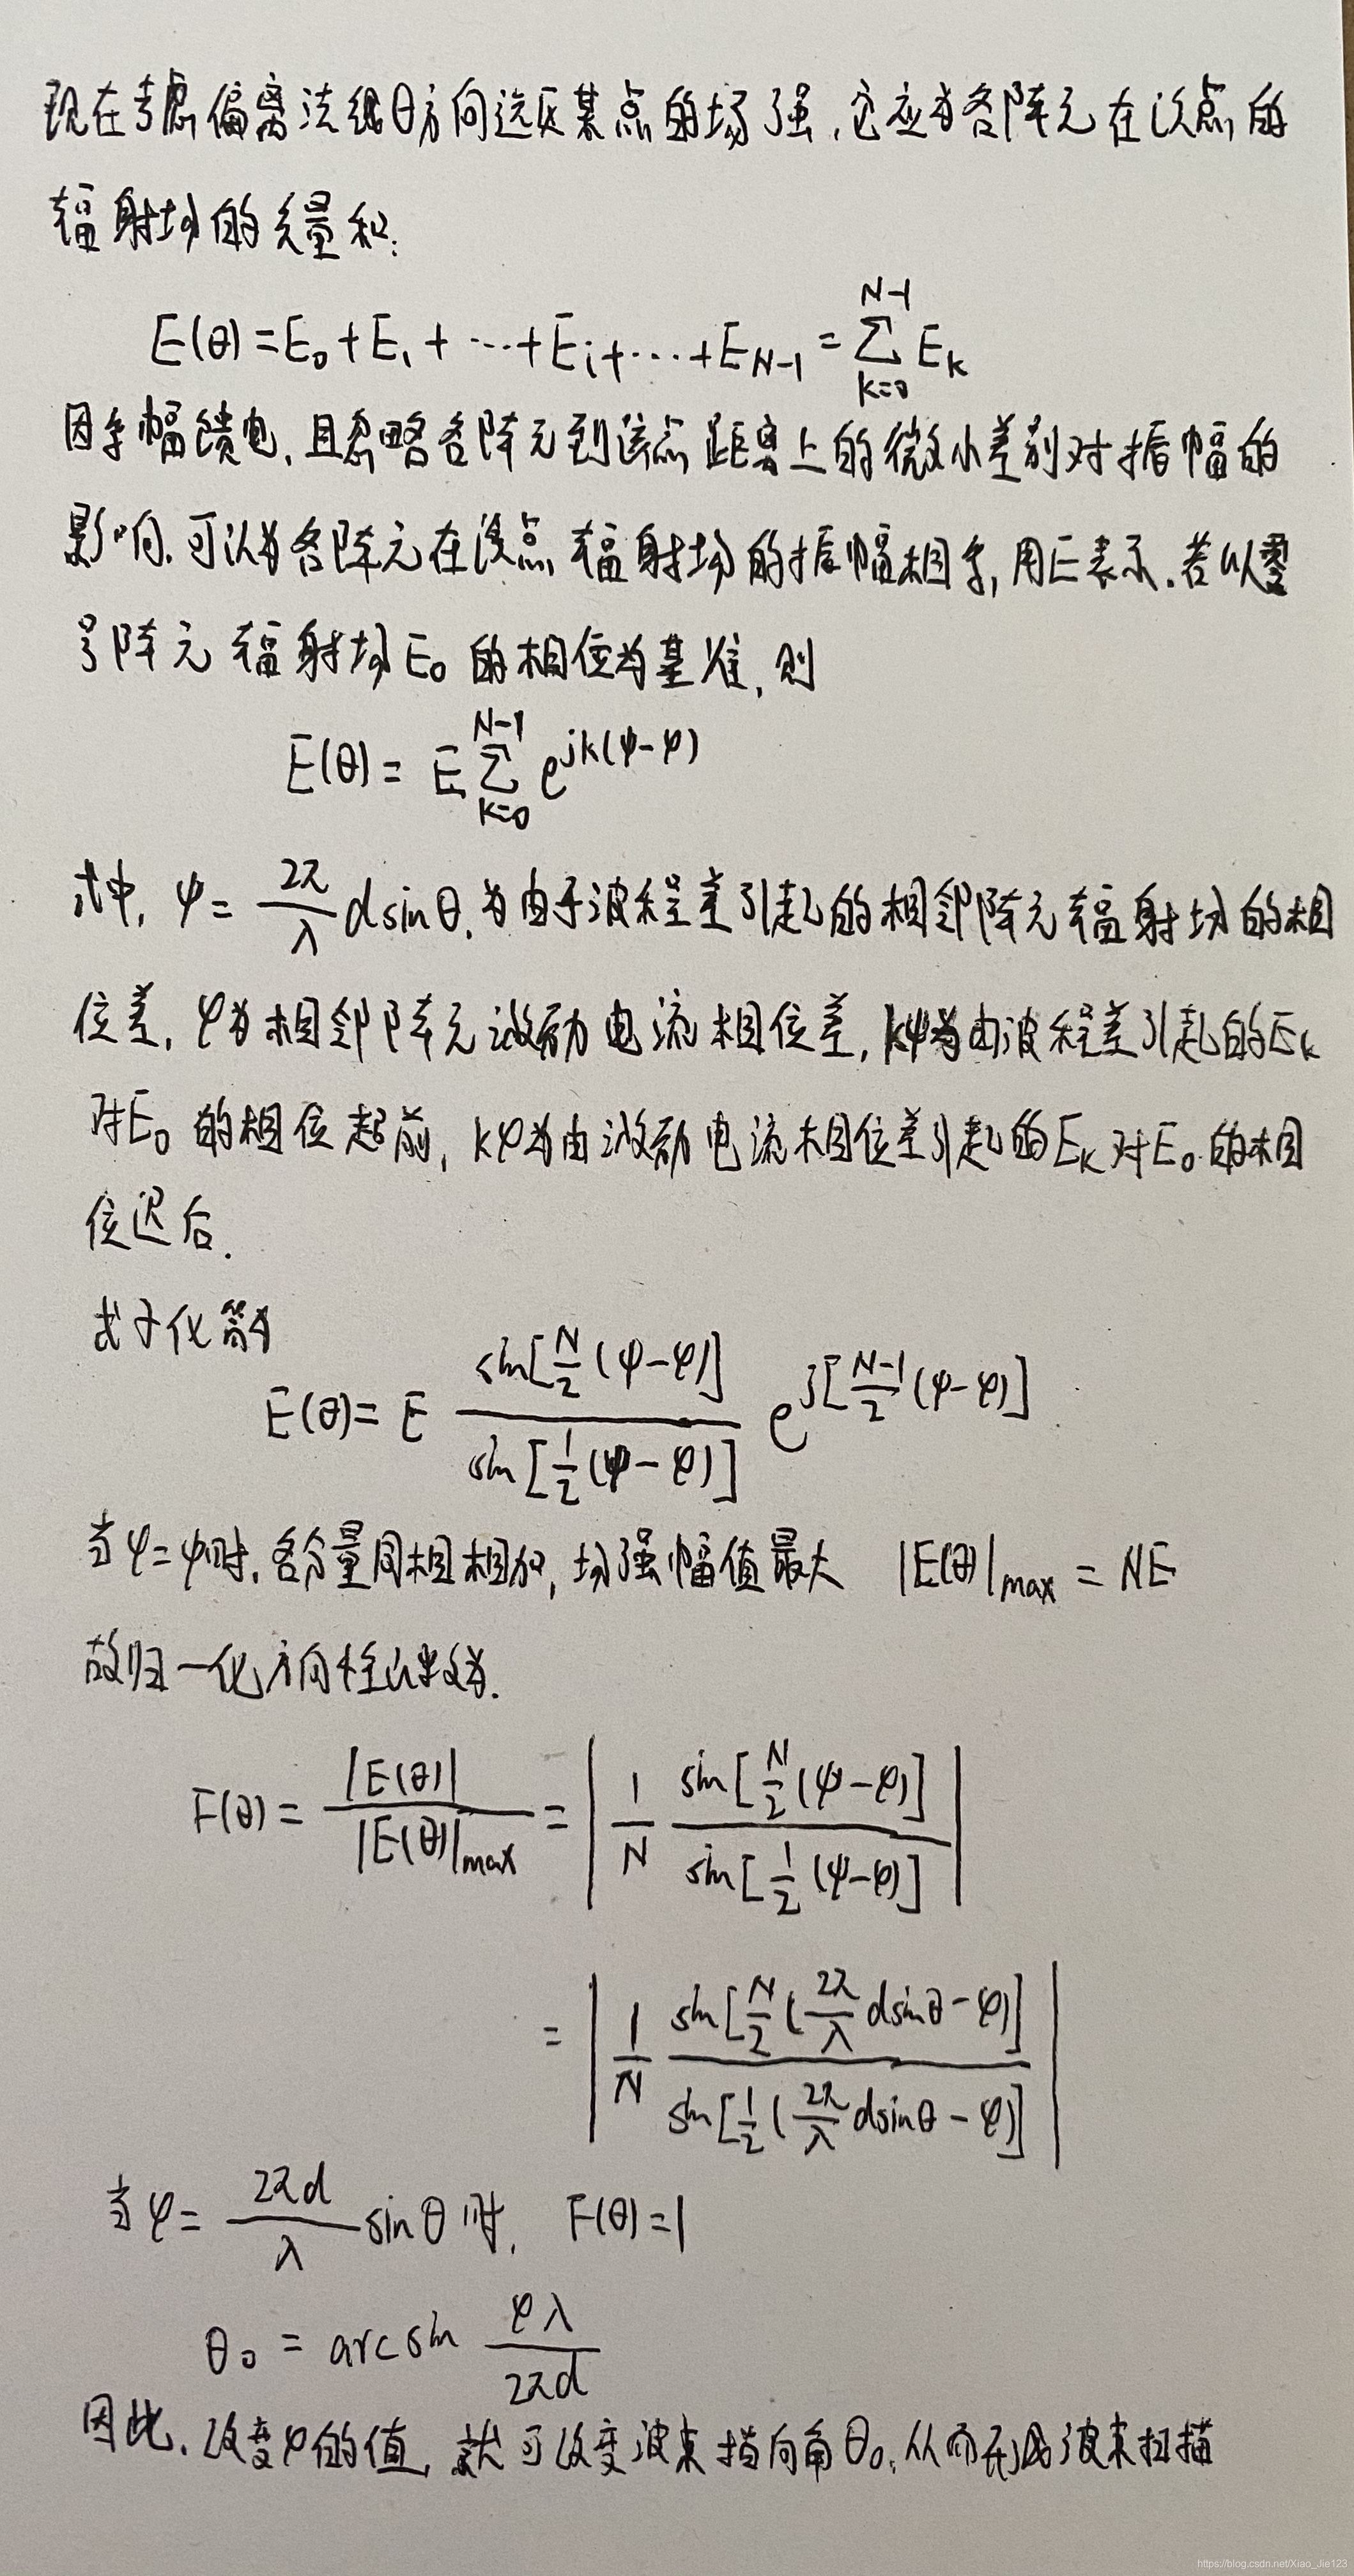 现在考虑偏离法线θ方向远区某点的场强,它应为各阵元在该点的
辐射场的矢量和:
E(θ)=E₀+E₁+···+Eᵢ+···+E_{N-1}=∑_{k=0}^{N-1} E_k
因等幅馈电,且忽略各阵元到该点距离上的微小差别对振幅的
影响.可以为各阵元在该点辐射场的振幅相等,用E表示.若以零
号阵元辐射场E₀的相位为基准,则
E(θ)= E∑_{k=0}^{N-1} e^{jk(ψ-φ)}
式中, ψ= \frac{2π}{λ} d sinθ.为由于波程差引起的相邻阵元辐射场的相
位差,φ为相邻阵元激励电流相位差,kψ为由波程差引起的E_k
对E₀的相位超前,kφ为由激励电流相位差引起的E_k对E₀的相
位迟后.
式子化简为
E(θ)= E \frac{sin[\frac{N}{2}(ψ-φ)]}{sin[\frac{1}{2}(ψ-φ)]} e^{j[\frac{N-1}{2}(ψ-φ)]}
当φ=ψ时.各分量同相相加,场强幅值最大 |E(θ)|_{max} = NE
故归一化方向性函数为.
F(θ)= \frac{|E(θ)|}{|E(θ)|_{max}} = | \frac{1}{N} \frac{sin[\frac{N}{2}(ψ-φ)]}{sin[\frac{1}{2}(ψ-φ)]} |
= | \frac{1}{N} \frac{sin[\frac{N}{2}(\frac{2π}{λ}dsinθ-φ)]}{sin[\frac{1}{2}(\frac{2π}{λ}dsinθ-φ)]} |
当φ= \frac{2πd}{λ} sinθ时, F(θ)=1
θ₀ = arcsin \frac{φλ}{2πd}
因此,改变φ的值,就可改变波束指向角θ₀,从而形成波束扫描
https://blog.csdn.net/Xiao_Jie123